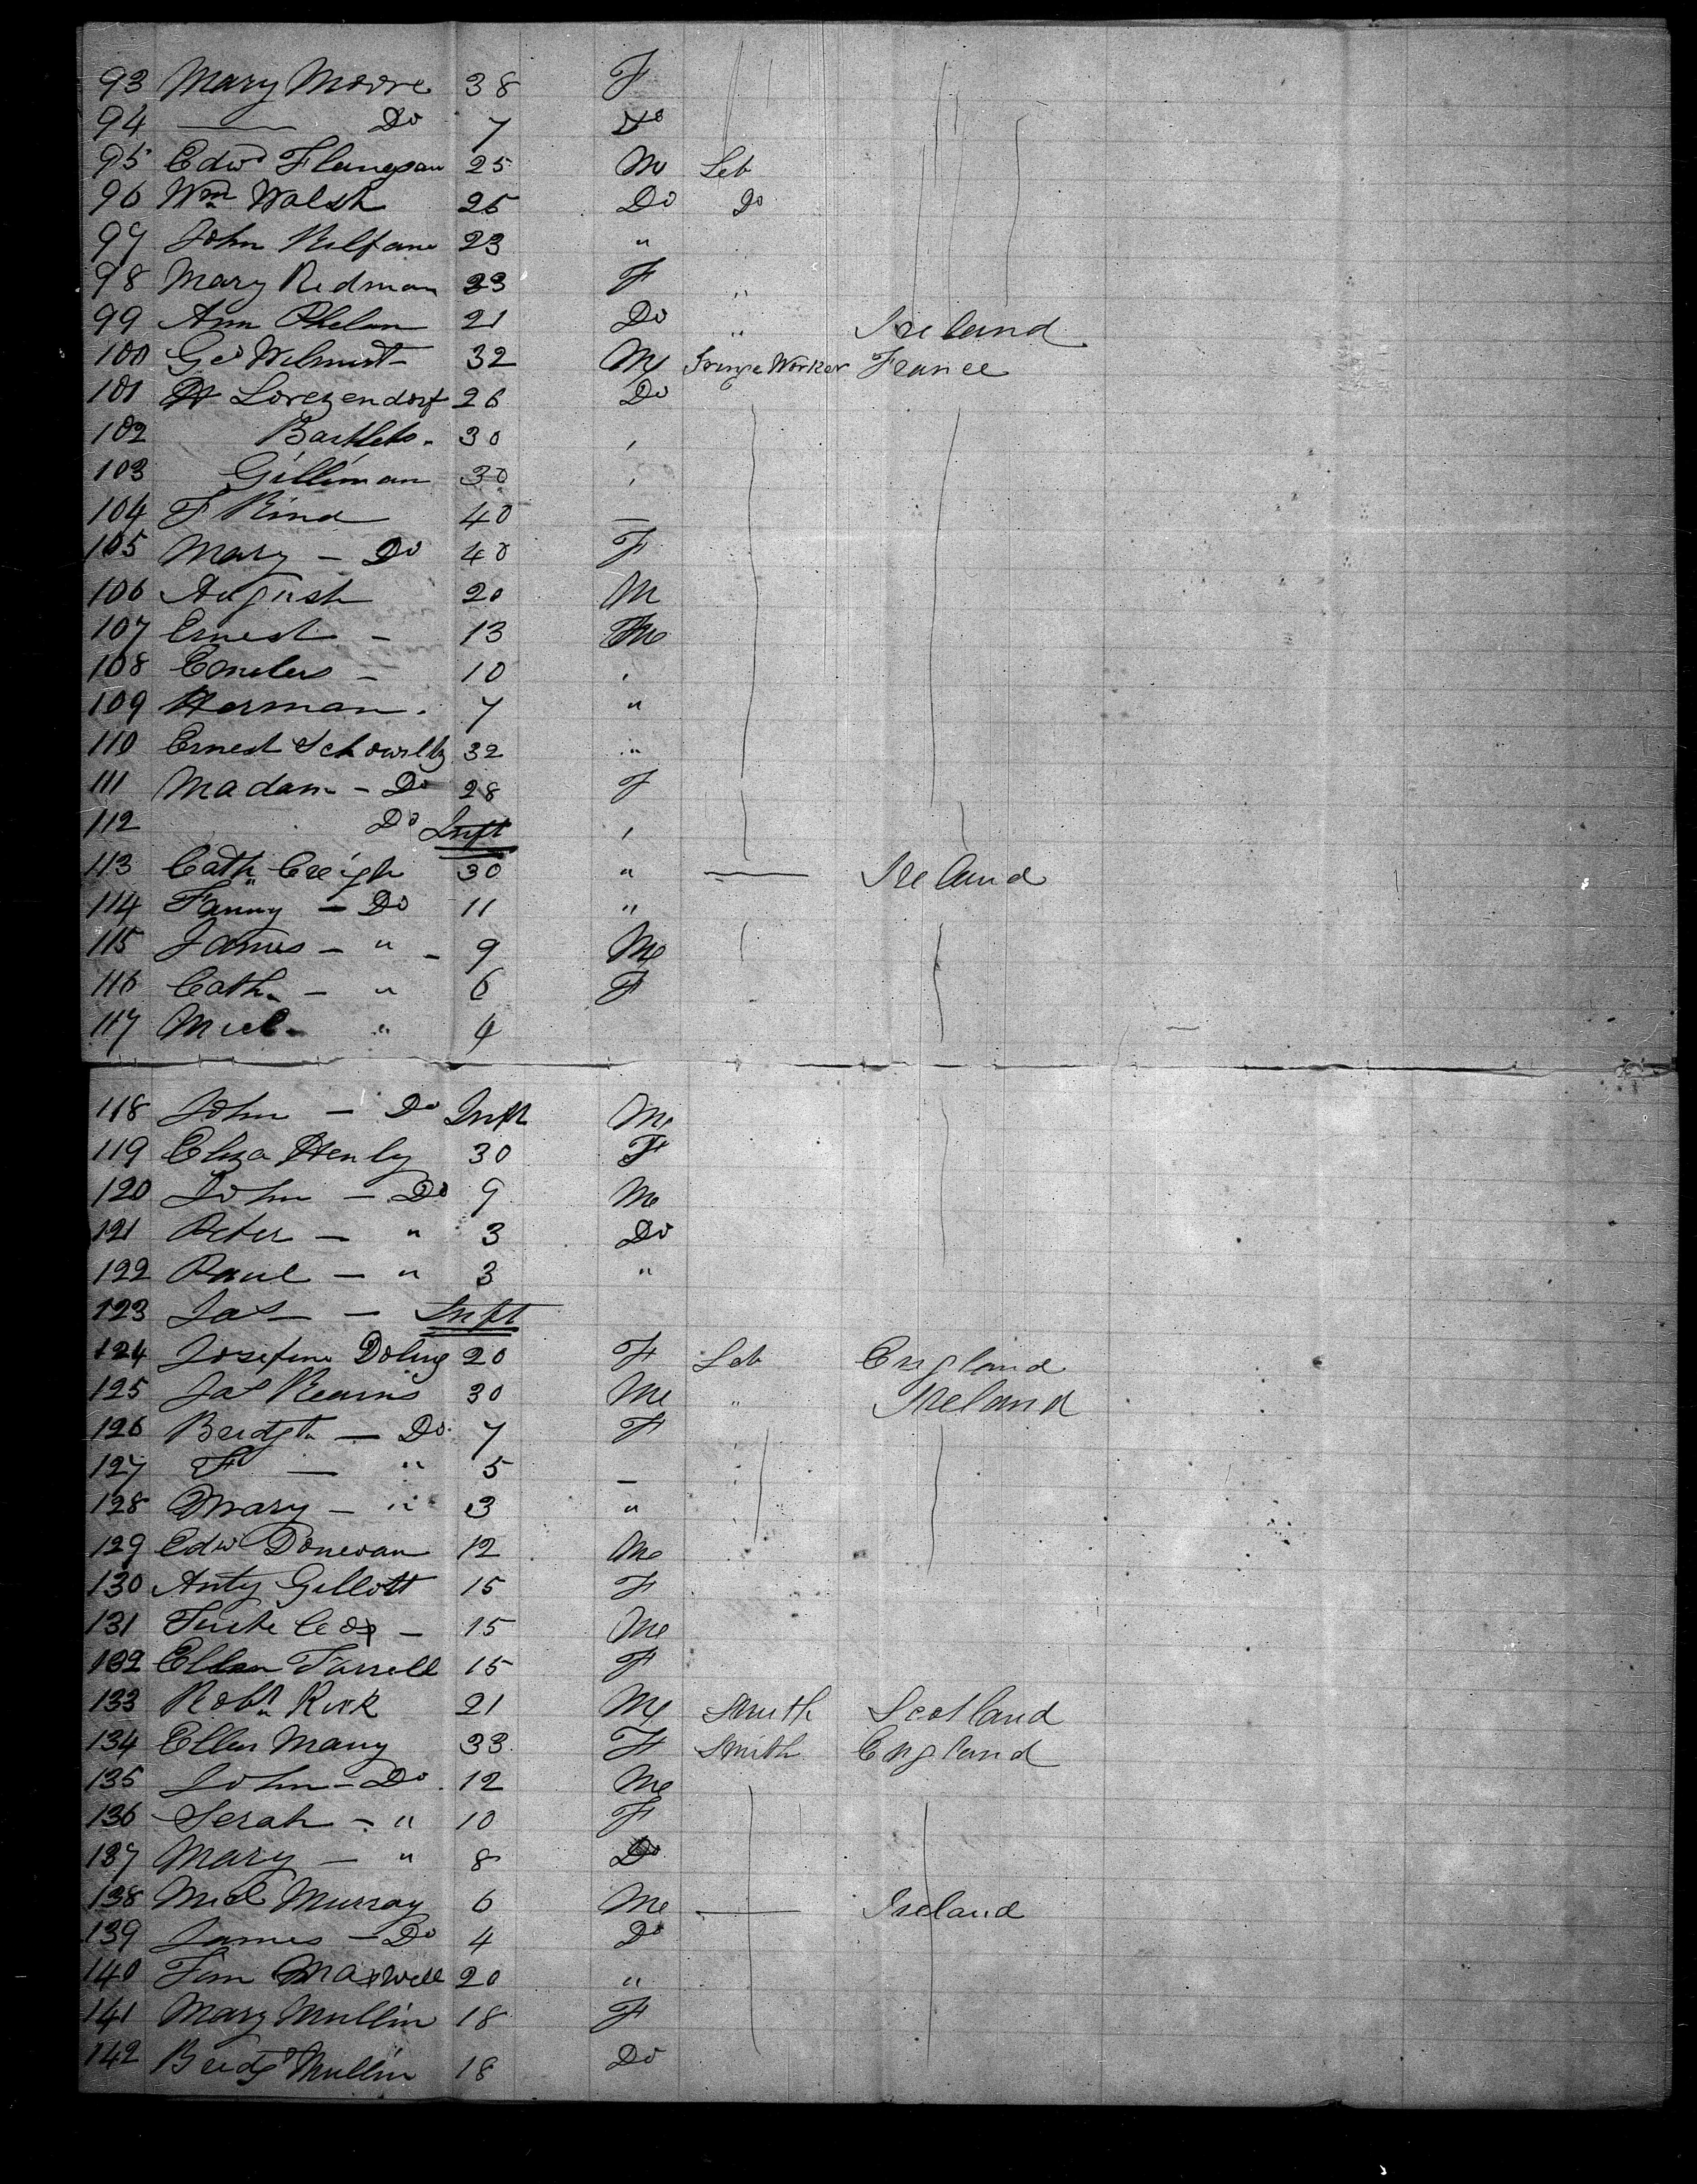 93 Mary Moore 38 F
94 —— Do 7 Do
95 Edwd Flanegan 25 M Lab
96 Wm Walsh 25 Do Do
97 John Kilfane 23 "
98 Mary Redman 23 F "
99 Ann Phelan 21 Do " Ireland
100 Geo Wilmot 32 M Worker France
101 Lorezendorf 26 Do
102 Bartlets 30 "
103 Gilliman 30 "
104 F Kind 40 —
105 Mary — Do 40 F
106 August 20 M
107 Ernest — 13 M
108 10 "
109 Herman 7 "
110 Ernest 32 "
111 Madam - Do 28 F
112 Do Inft "
113 Cath Creigh 30 " —— Ireland
114 Fanny — Do 11 "
115 James — " — 9 M
116 Cath. — " 6 F
117 Micl " 4
118 John — Do Inft M
119 Eliza Henly 30 F
120 John — Do 9 M
121 Peter — " 3 Do
122 Paul — " 3 "
123 Jas — Inft
124 Josefine 20 F Lab England
125 Jas Kearns 30 M " Ireland
126 Bridgt — Do 7 F
127 F — " 5 —
128 Mary — " 3 "
129 Edw Donevan 12 M
130 Anty Gillott 15 F
131 Cox — 15 M
132 Ellen Farrell 15 F
133 Robt Kirk 21 M Smith Scotland
134 Ellen Many 33 F Smith England
135 John — Do 12 M
136 Serah — " 10 F
137 Mary — " 8 Do
138 Micl Murray 6 M —— Ireland
139 James — Do 4 Do
140 Maxwell 20 "
141 Mary Mullin 18 F
142 Bridgt Mullin 18 Do